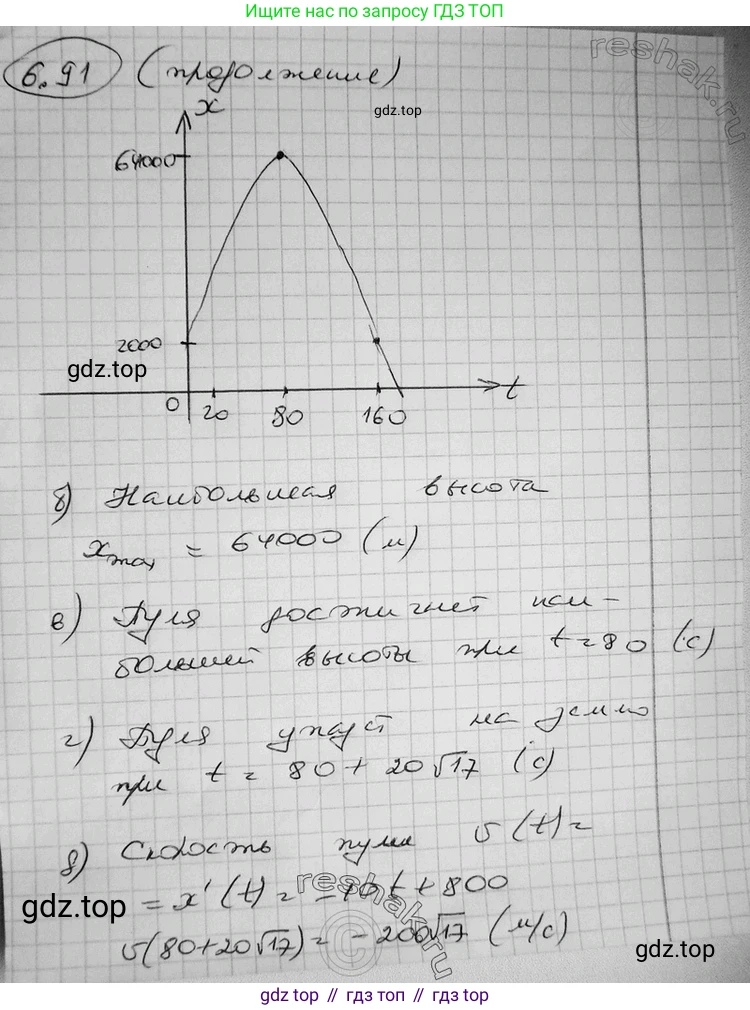 Ищите нас по запросу ГДЗ ТОП
6.91 (продолжение)
reshak.ru
gdz.top
x
64000
2000
gdz.top
0 20 80 160 t
б) Наибольшая высота
xmax = 64000 (м)
в) Пуля достигнет наи-
большей высоты при t = 80 (с)
г) Пуля упадет на землю
при t = 80 + 20√17 (с)
д) Скорость пули v(t) =
= x'(t) = -10t + 800
reshak.ru
gdz.top
v(80+20√17) = -200√17 (м/с)
gdz.top
gdz top // гдз топ // gdz top